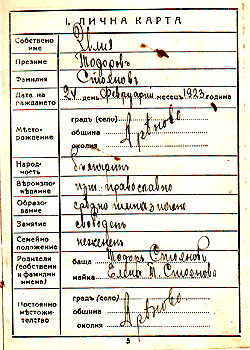 I. ЛИЧНА КАРТА
Собствено име Илия
Презиме Тодоровъ
Фамилия Стояновъ
Дата на раждането 24 день февруарий месецъ 1923 година
Мѣсто-рождение градъ (село)
община Арѣново
околия
Народ-ность българинъ
Вѣроизпо-вѣдание изт. православно
Образо-вание срѣдно гимназиално
Занятие свободенъ
Семейно положение нежененъ
Родители (собствени и фамилни имена) баща Тодоръ Стояновъ
майка Елена М. Стоянова
Постоянно мѣстожи-телство градъ (село)
община Арѣново
околия
5